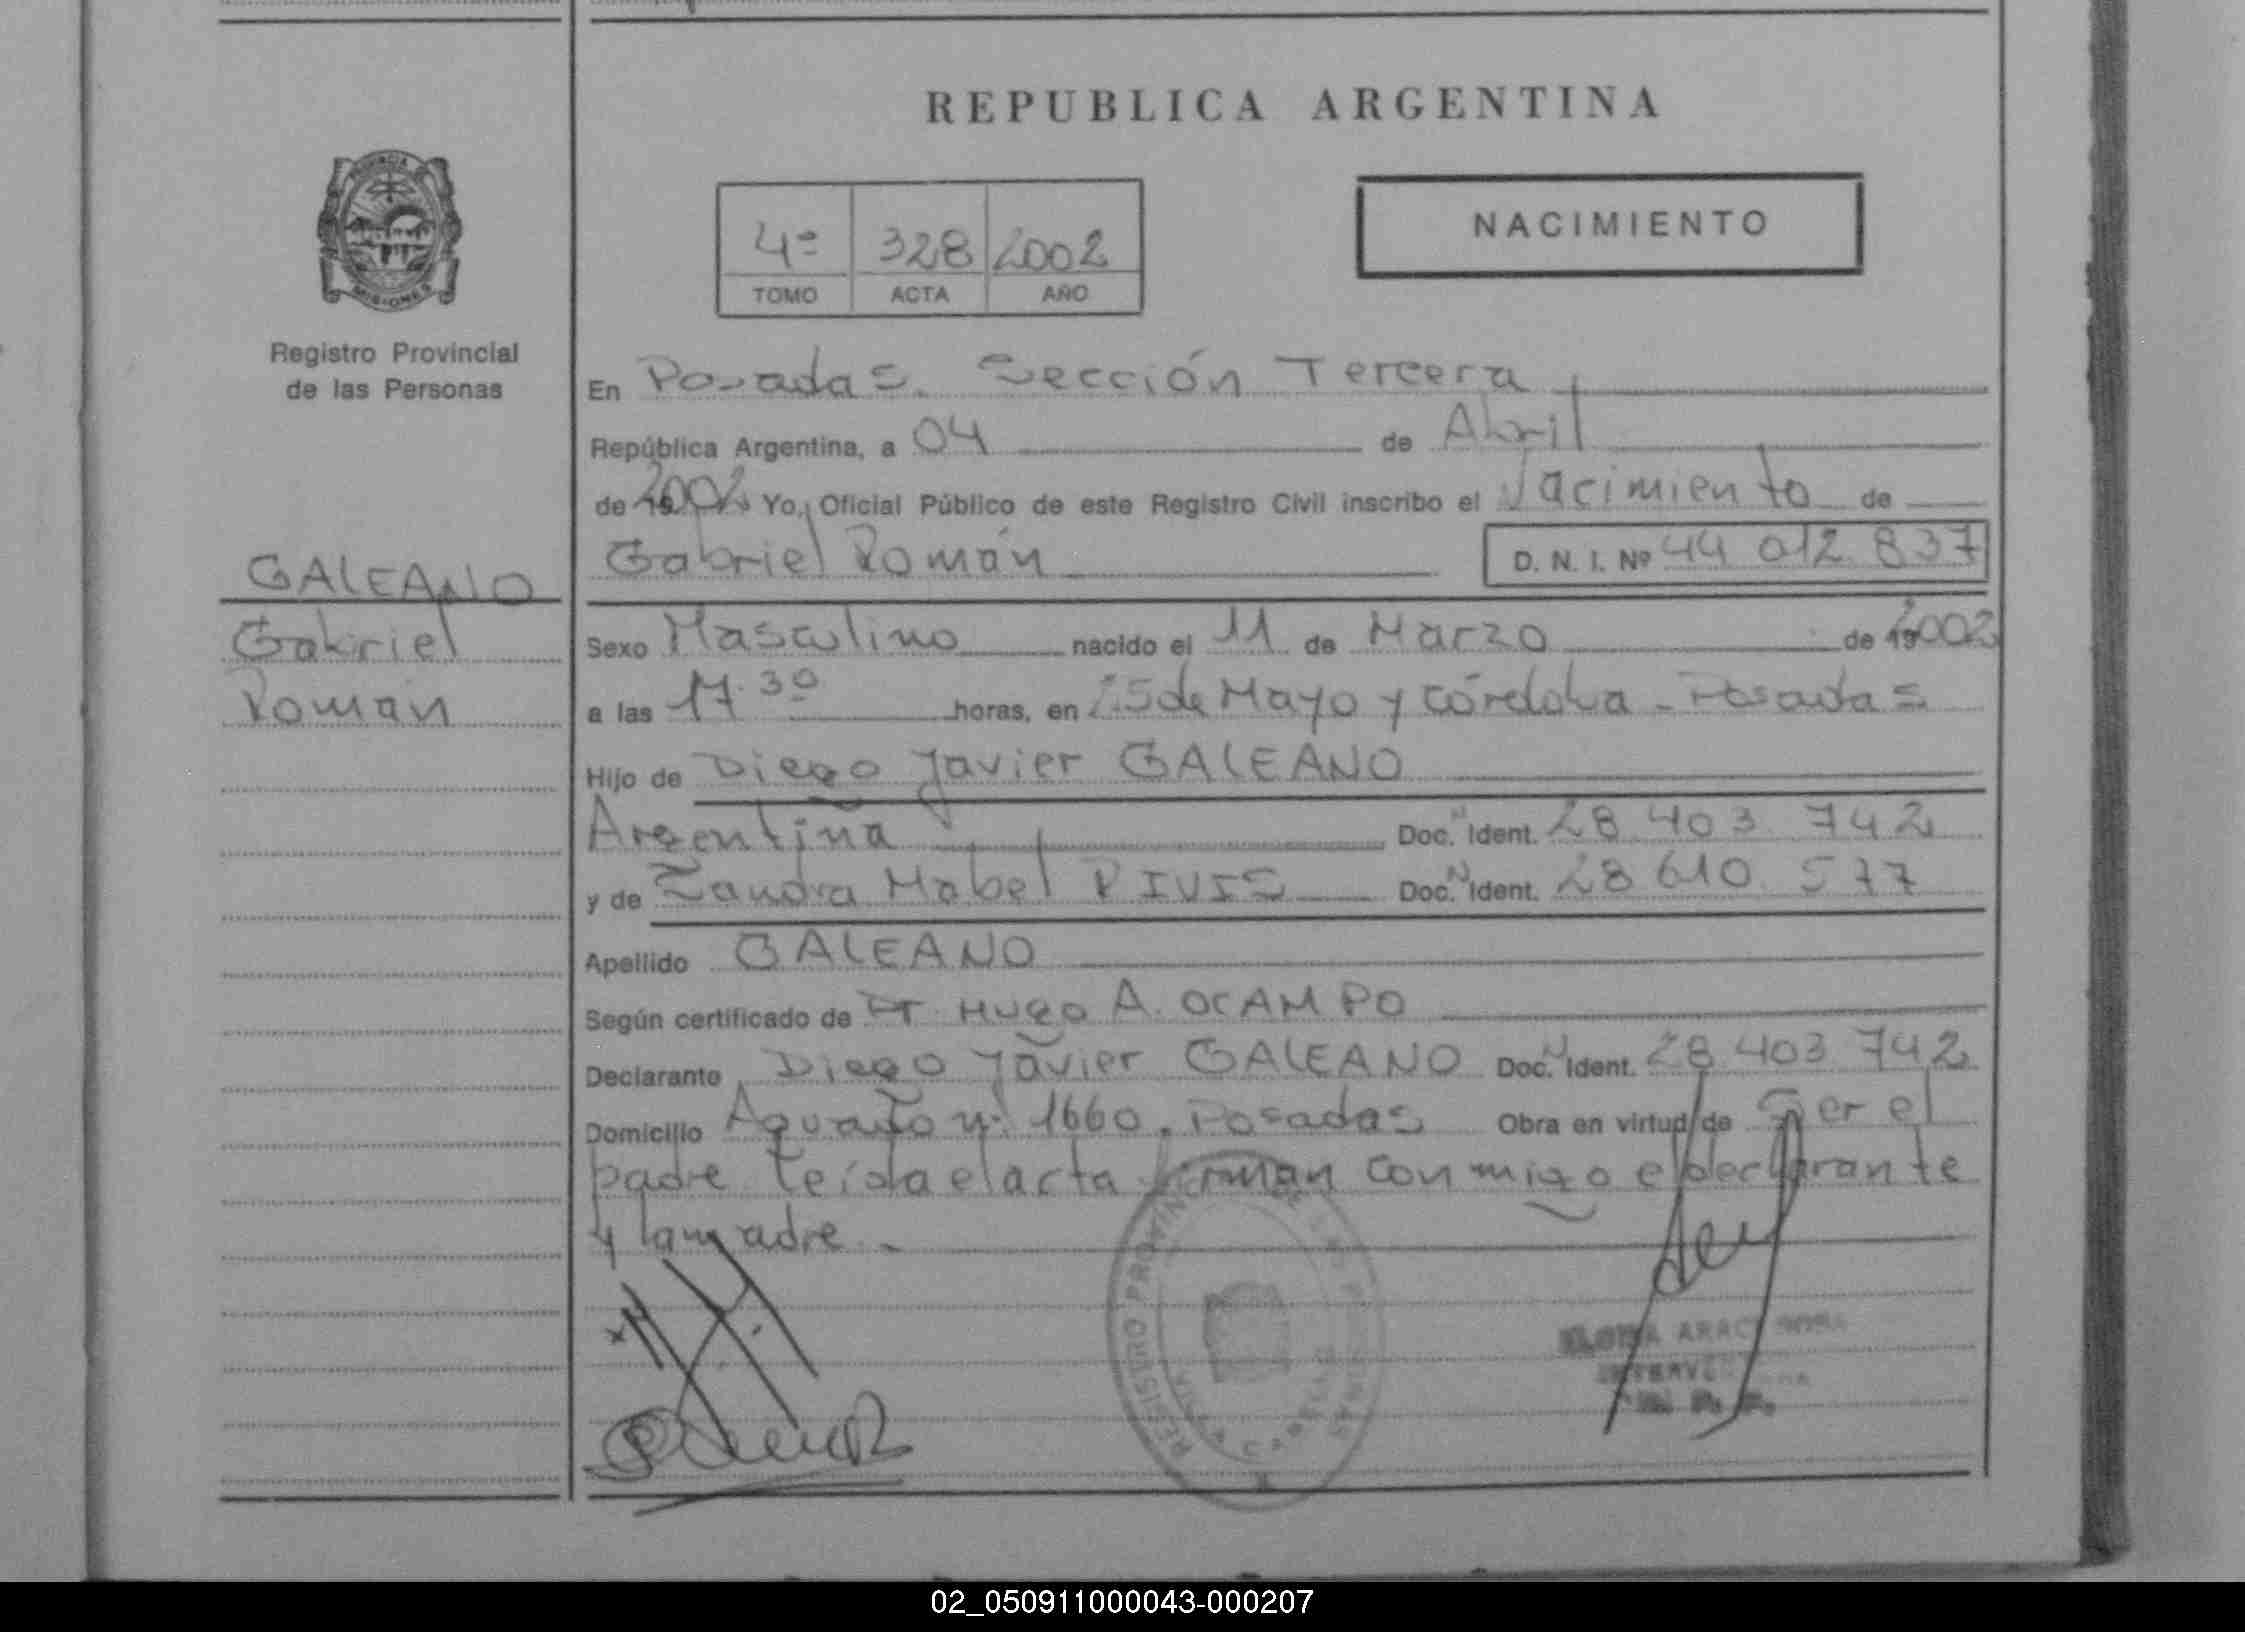 REPUBLICA ARGENTINA
NACIMIENTO
4º 328 2002
TOMO ACTA AÑO
PROVINCIA
MISIONES
Registro Provincial
de las Personas
GALEANO
Gabriel
Román
En Posadas. Sección Tercera
República Argentina, a 04 de Abril
de 2002 Yo, Oficial Público de este Registro Civil inscribo el Nacimiento de
Gabriel Román D. N. I. Nº 44 012 837
Sexo Masculino nacido el 11 de Marzo de 2002
a las 17.30 horas, en 25 de Mayo y Córdoba - Posadas
Hijo de Diego Javier GALEANO
Argentina Doc. N Ident. 28 403 742
y de Zandra Mabel RIVIS Doc. N Ident. 28 610 577
Apellido GALEANO
Según certificado de Dr. HUGO A. OCAMPO
Declarante Diego Javier GALEANO Doc. N Ident. 28 403 742
Domicilio 1660. Posadas Obra en virtud de Ser el
padre Leída el acta firman conmigo el declarante
y la madre. -
REGISTRO PROVINCIAL DE LAS PERSONAS
02_050911000043-000207